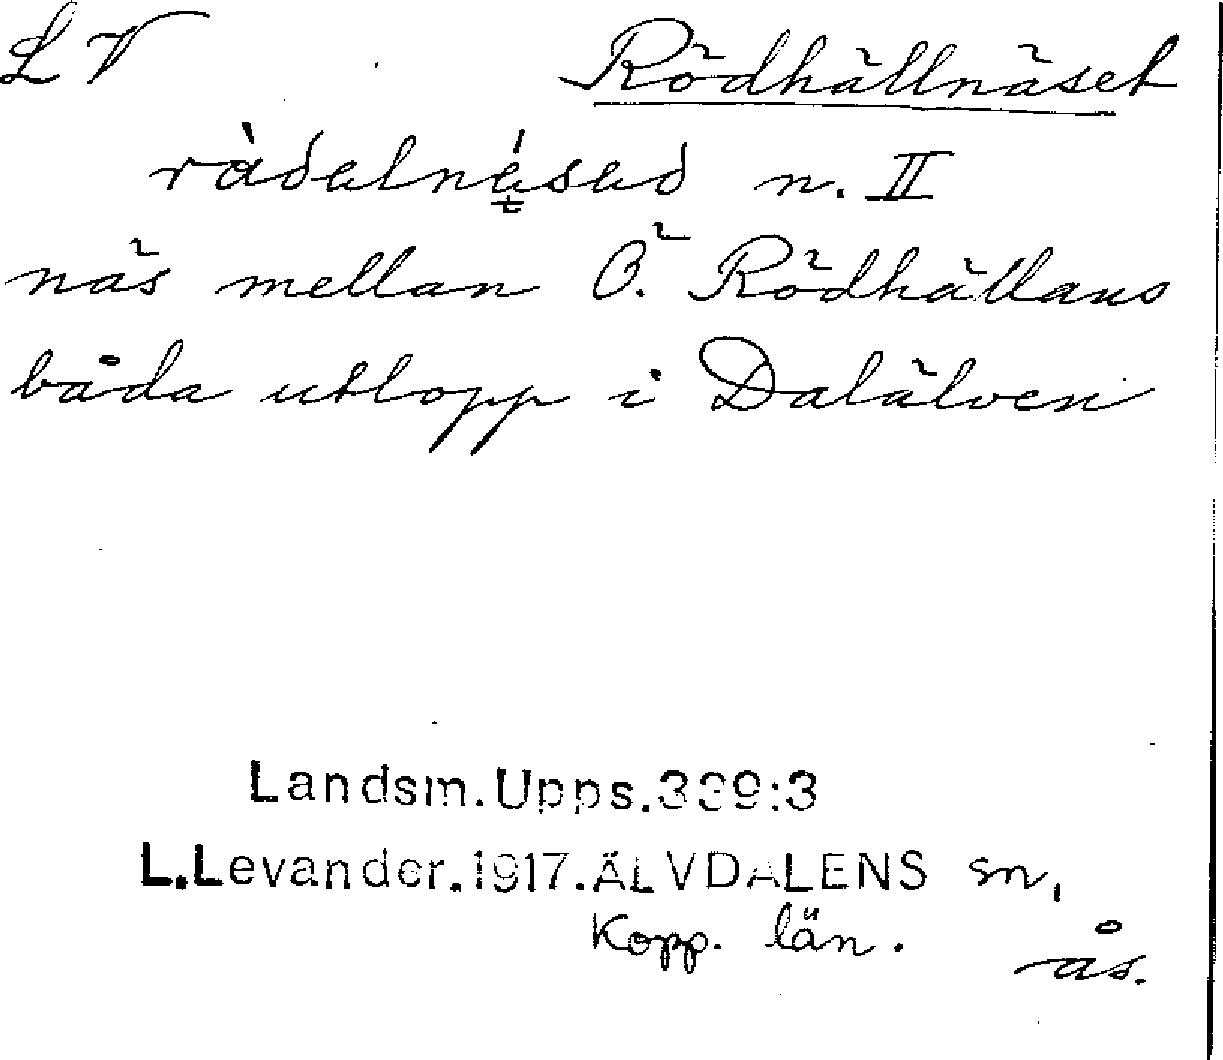 LV Rödhällnäset
ràdεlnésεd n. II
näs mellan Ö. Rödhällans
båda utlopp i Dalälven
Landsm.Upps.339:3
L.Levander.1917.ÄLVDALENS sn,
Kopp. län.
ås.